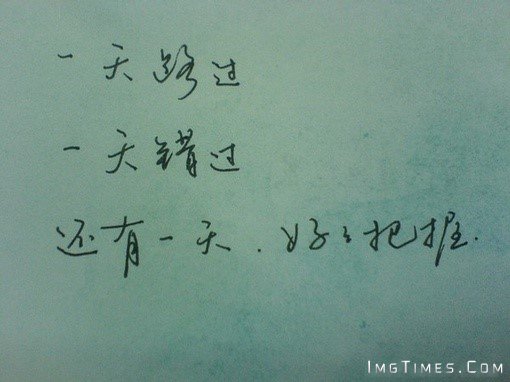 一天路过
一天错过
还有一天.好々把握.
IMGTIMES.COM